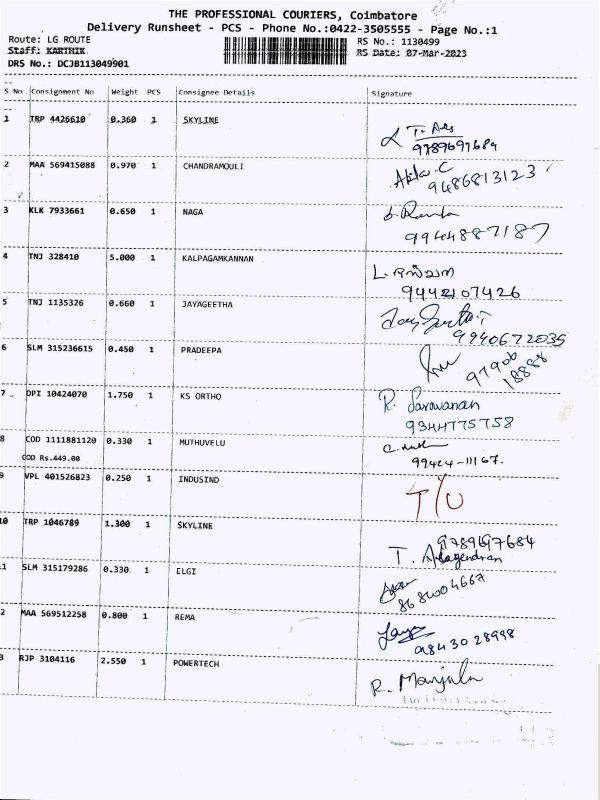 THE PROFESSIONAL COURIERS, Coimbatore
Delivery Runsheet - PCS - Phone No.:0422-3505555 - Page No.:1
Route: LG ROUTE RS No.: 1130499
Staff: KARTHIK RS Date: 07-Mar-2023
DRS No.: DCJB113049901
S No Consignment No Weight PCS Consignee Details Signature
1 TRP 4426610 0.360 1 SKYLINE
9789697684
2 MAA 569415088 0.970 1 CHANDRAMOULI
Akila. C
9486813123
3 KLK 7933661 0.650 1 NAGA
9944887187
4 TNJ 328410 5.000 1 KALPAGAMKANNAN
9442107426
5 TNJ 1135326 0.660 1 JAYAGEETHA
9940672035
6 SLM 315236615 0.450 1 PRADEEPA
97900
18888
7 DPI 10424070 1.750 1 KS ORTHO
R. Saravanan
9344775758
8 COD 1111881120 0.330 1 MUTHUVELU
COD Rs.449.00
99424-11167.
9 VPL 401526823 0.250 1 INDUSIND
T/U
10 TRP 1046789 1.300 1 SKYLINE
9789697684
T. Alagendran
11 SLM 315179286 0.330 1 ELGI
8684004667
2 MAA 569512258 0.800 1 REMA
9843028998
3 RJP 3104116 2.550 1 POWERTECH
R. Manjula